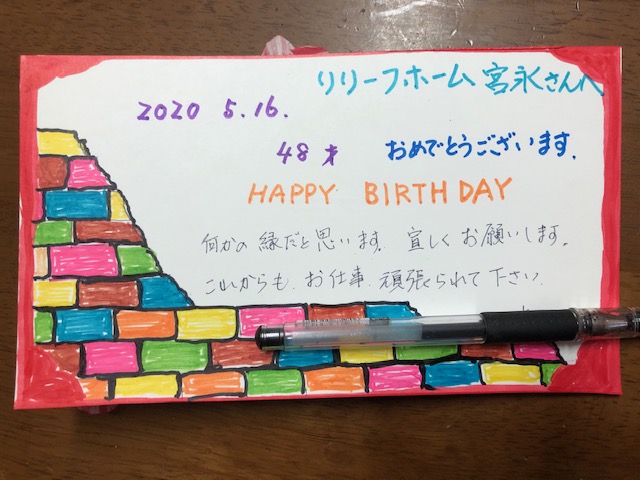 リリーフホーム 宮永さんへ
2020 5.16.
48才 おめでとうございます.
HAPPY BIRTHDAY
何かの縁だと思います. 宜しくお願いします.
これからも、お仕事 頑張られて下さい.